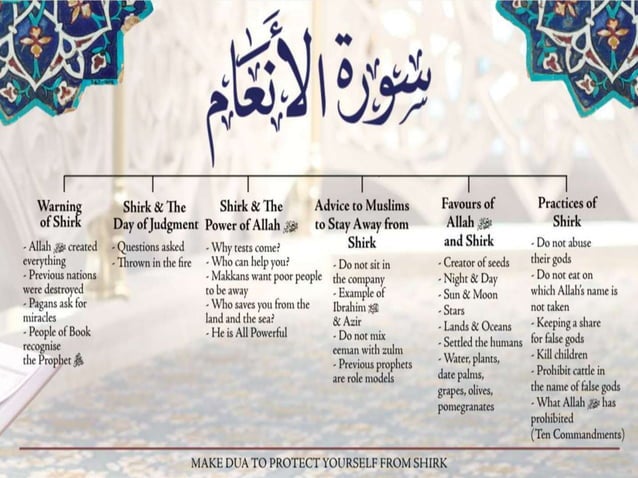 سورة الأنعام
Warning
of Shirk
- Allah ﷻ created
everything
- Previous nations
were destroyed
- Pagans ask for
miracles
- People of Book
recognise
the Prophet ﷺ
Shirk & The
Day of Judgment
- Questions asked
- Thrown in the fire
Shirk & The
Power of Allah ﷻ
- Why tests come?
- Who can help you?
- Makkans want poor people
to be away
- Who saves you from the
land and the sea?
- He is All Powerful
Advice to Muslims
to Stay Away from
Shirk
- Do not sit in
the company
- Example of
Ibrahim
& Azir
- Do not mix
eeman with zulm
- Previous prophets
are role models
Favours of
Allah ﷻ
and Shirk
- Creator of seeds
- Night & Day
- Sun & Moon
- Stars
- Lands & Oceans
- Settled the humans
- Water, plants,
date palms,
grapes, olives,
pomegranates
Practices of
Shirk
- Do not abuse
their gods
- Do not eat on
which Allah's name is
not taken
- Keeping a share
for false gods
- Kill children
- Prohibit cattle in
the name of false gods
- What Allah ﷻ has
prohibited
(Ten Commandments)
MAKE DUA TO PROTECT YOURSELF FROM SHIRK